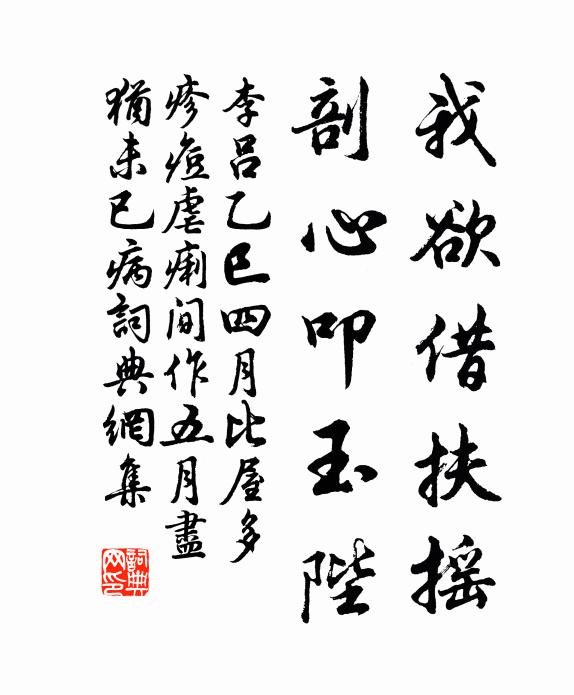 我欲借扶摇
剖心叩玉陛
李吕乙巳四月比屋多
疹痘虐痢间作五月盡
猶未已病詞典網集
詞典網印